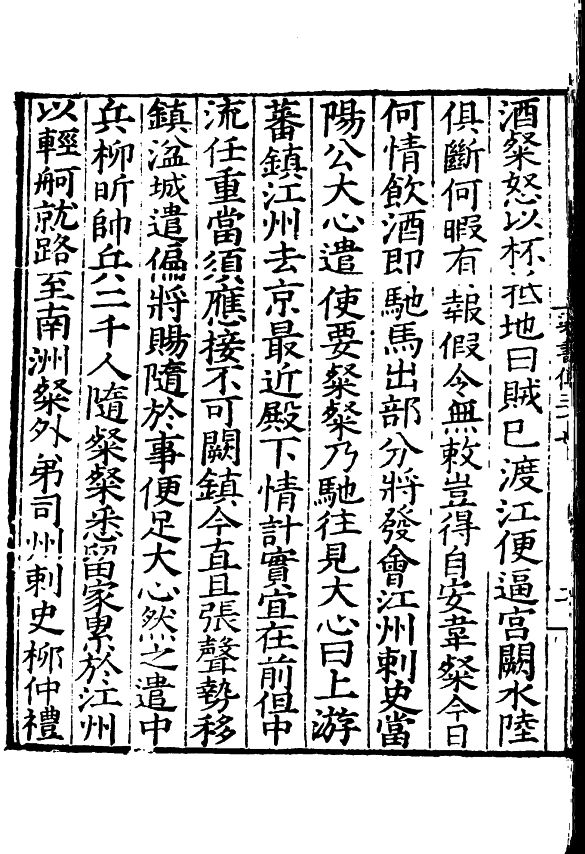 酒粲怒以杯抵地曰賊已渡江便逼宮闕水陸
俱斷何暇有報假令無敕豈得自安韋粲今日
何情飲酒即馳馬出部分將發會江州刺史當
陽公大心遣使要粲粲乃馳往見大心曰上游
蕃鎮江州去京最近殿下情計實宜在前但中
流任重當須應接不可闕鎮今直且張聲勢移
鎮湓城遣偏將賜隨於事便足大心然之遣中
兵柳昕帥兵二千人隨粲粲悉留家累於江州
以輕舸就路至南洲粲外弟司州刺史柳仲禮